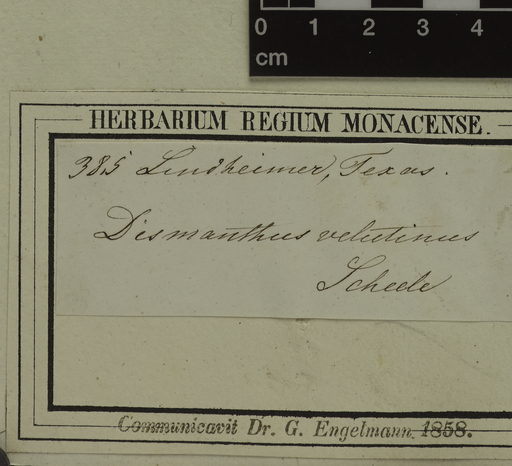 0 1 2 3 4
cm
HERBARIUM REGIUM MONACENSE.
385 Lindheimer, Texas.
Dismanthus velutinus
Scheele
Communicavit Dr. G. Engelmann. 1858.